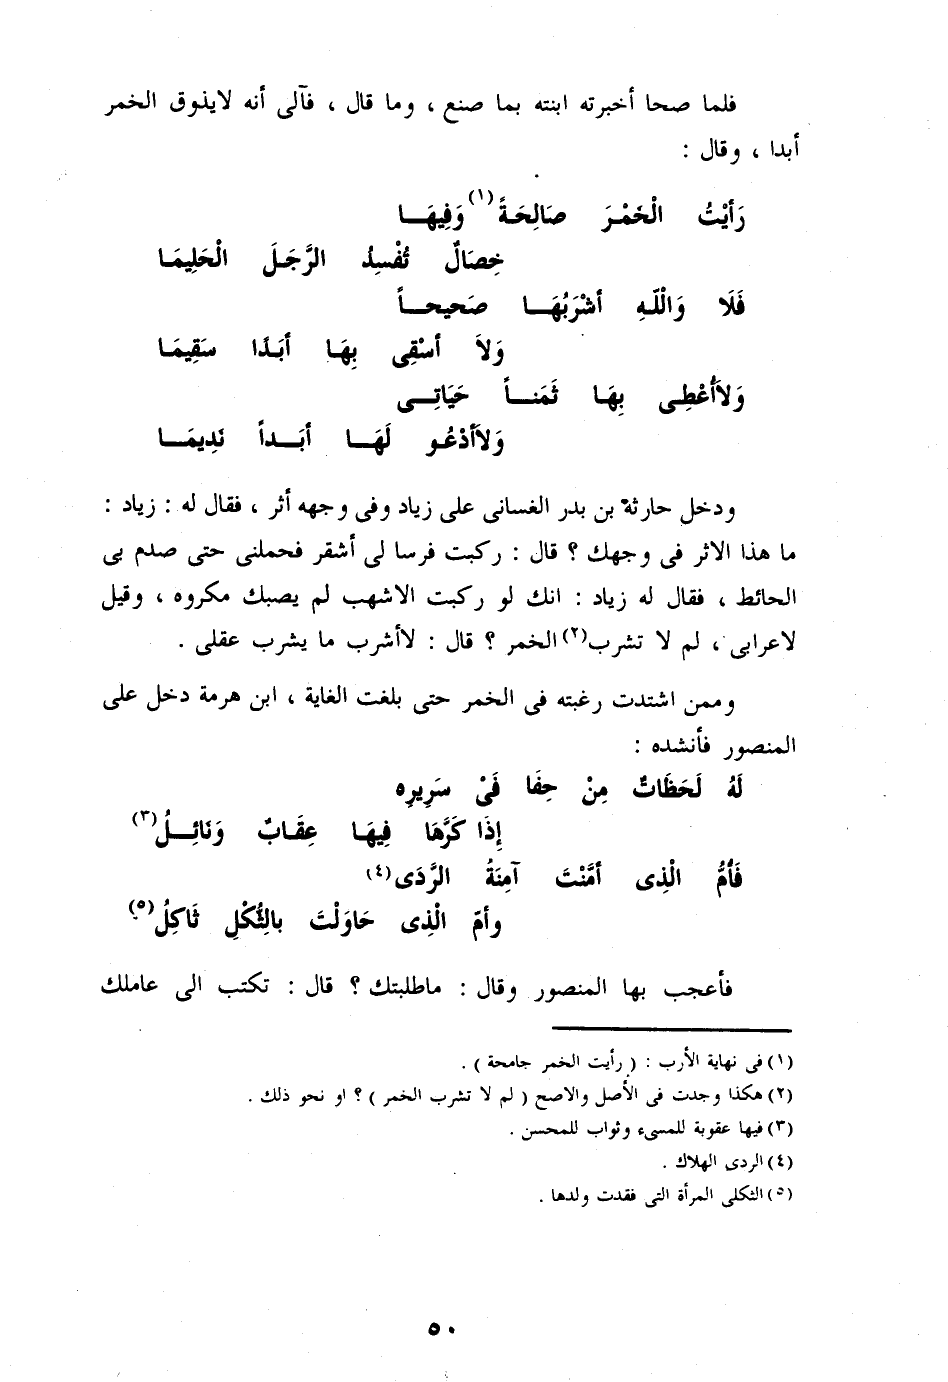 فلما صحا أخبرته ابنته بما صنع ، وما قال ، فآلى أنه لايذوق الخمر
أبدا ، وقال :
رَأيْتُ الْخَمْرَ صَالِحَةً(١) وَفِيهَـــا
خِصَالٌ تُفْسِدُ الرَّجَلَ الْحَلِيمَا
فَلَا وَاللّهِ أشْرَبُهَـــا صَحيحـــاً
وَلاَ أسْقِى بِهَـا أبَـدًا سَقِيمَـا
وَلاَأُعْطِـى بِهَـا ثَمَنـــاً حَيَاتِـــى
وَلاَأدْعُـو لَهَـــا أبَـــداً نَدِيمَـــا
ودخل حارثة بن بدر الغسانى على زياد وفى وجهه أثر ، فقال له : زياد :
ما هذا الاثر فى وجهك ؟ قال : ركبت فرسا لى أشقر فحملنى حتى صدم بى
الحائط ، فقال له زياد : انك لو ركبت الاشهب لم يصبك مكروه ، وقيل
لاعرابى ، لم لا تشرب(٢) الخمر ؟ قال : لاأشرب ما يشرب عقلى .
وممن اشتدت رغبته فى الخمر حتى بلغت الغاية ، ابن هرمة دخل على
المنصور فأنشده :
لَهُ لَحَظَاتٌ مِنْ حِفَا فَىْ سَرِيرِه
إِذَا كَرَّهَا فِيهَـا عِقَـابٌ وَنَائِـــلُ(٣)
فَأمُّ الْذِى أمَّنْتَ آمِنَةُ الرَّدَى(٤)
وأمّ الْذِى حَاوَلْتَ بالثُّكْلِ ثَاكِلُ(٥)
فأعجب بها المنصور وقال : ماطلبتك ؟ قال : تكتب الى عاملك
(١) فى نهاية الأرب : ( رأيت الخمر جامحة ) .
(٢) هكذا وجدت فى الأصل والاصح ( لم لا تشرب الخمر ) ؟ او نحو ذلك .
(٣) فيها عقوبة للمسىء وثواب للمحسن .
(٤) الردى الهلاك .
(٥) الثكلى المرأة التى فقدت ولدها .
٥٠